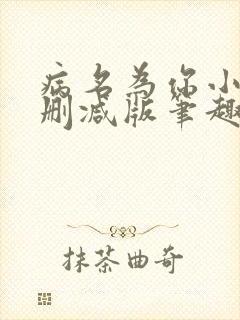 病名为你小
删减版笔趣
抹茶曲奇